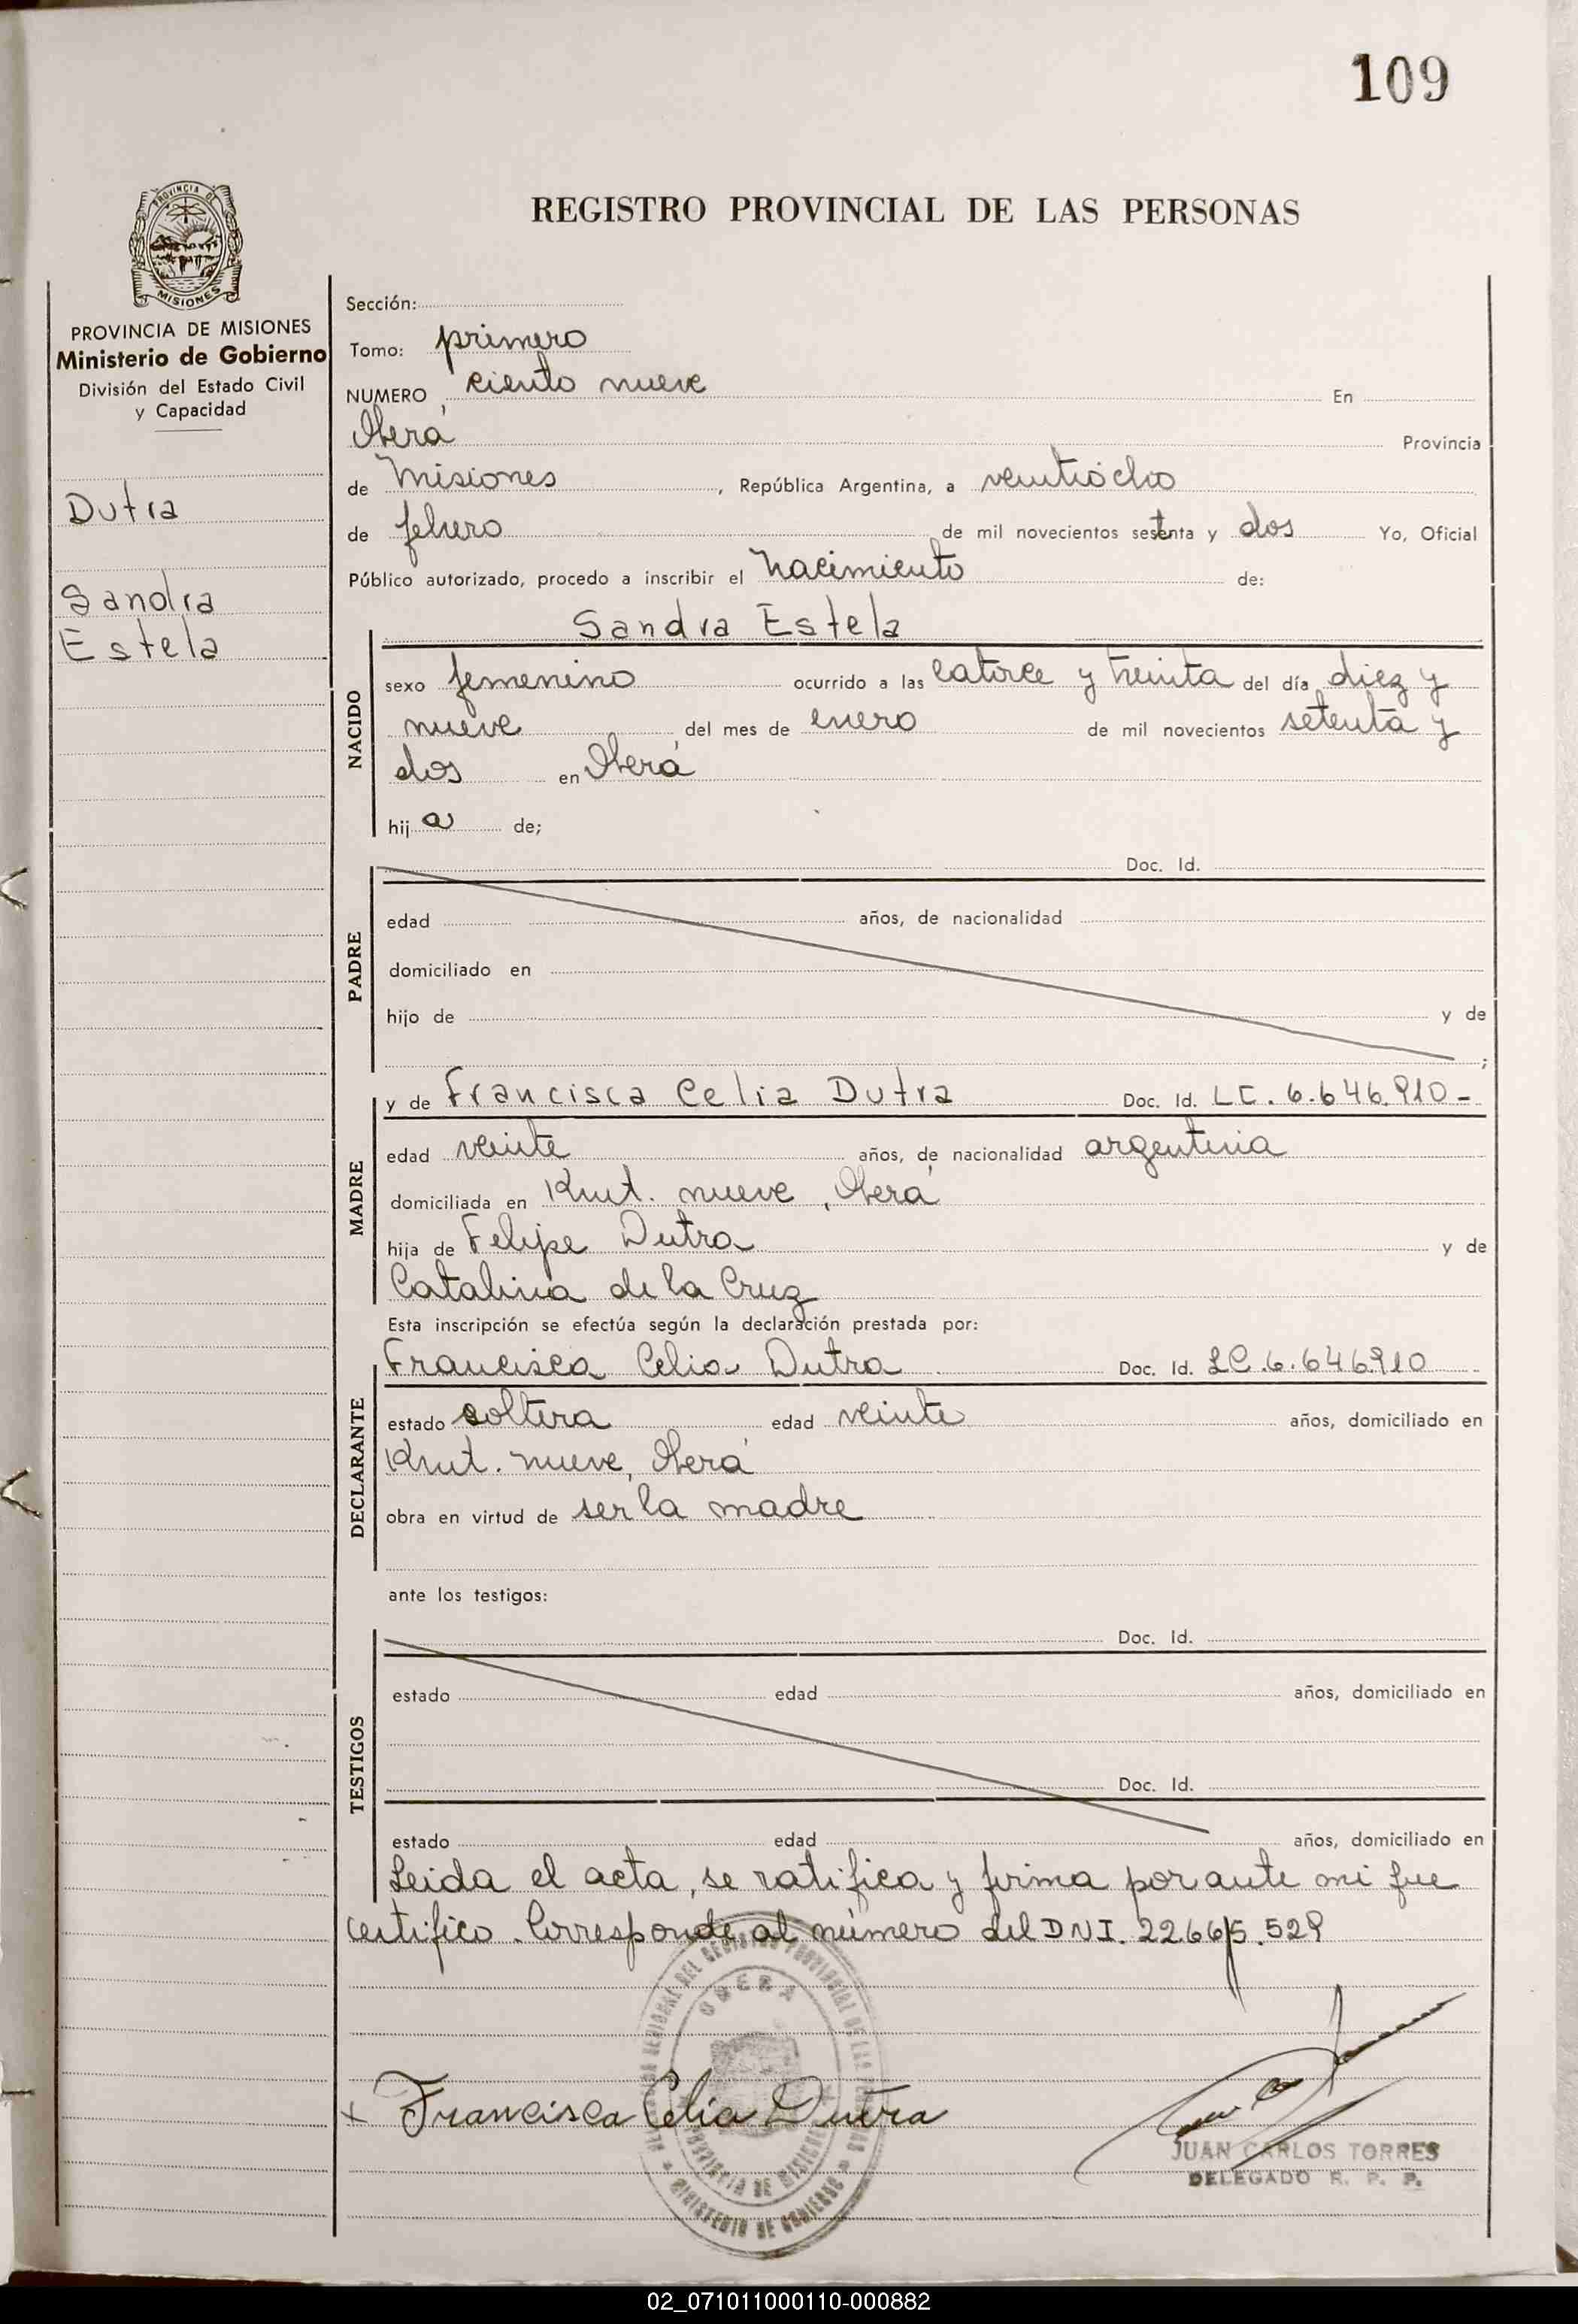 109
REGISTRO PROVINCIAL DE LAS PERSONAS
PROVINCIA DE
MISIONES
PROVINCIA DE MISIONES
Ministerio de Gobierno
División del Estado Civil
y Capacidad
Dutra
Sandra
Estela
Sección:
Tomo: primero
NUMERO ciento nueve En
Oberá Provincia
de Misiones, República Argentina, a veintiócho
de febrero de mil novecientos sesenta y dos Yo, Oficial
Público autorizado, procedo a inscribir el nacimiento de:
Sandra Estela
NACIDO
sexo femenino ocurrido a las catorce y treinta del día diez y
nueve del mes de enero de mil novecientos setenta y
dos en Oberá
hija de;
PADRE
Doc. Id.
edad años, de nacionalidad
domiciliado en
hijo de y de
;
MADRE
y de Francisca Celia Dutra Doc. Id. LC. 6.646.910-
edad veinte años, de nacionalidad argentina
domiciliada en Kmt. nueve, Oberá
hija de Felipe Dutra y de
Catalina de la Cruz
Esta inscripción se efectúa según la declaración prestada por:
DECLARANTE
Francisca Celia Dutra Doc. Id. LC.6.646910
estado soltera edad veinte años, domiciliado en
Kmt. nueve, Oberá
obra en virtud de ser la madre
ante los testigos:
TESTIGOS
Doc. Id.
estado edad años, domiciliado en
Doc. Id.
estado edad años, domiciliado en
Leida el acta, se ratifica y firma por ante mi que
certifico. Corresponde al número del DNI. 22.665.529
OBERA
PROVINCIA DE MISIONES
MINISTERIO DE GOBIERNO
x Francisca Celia Dutra
JUAN CARLOS TORRES
DELEGADO R. P. P.
02_071011000110-000882